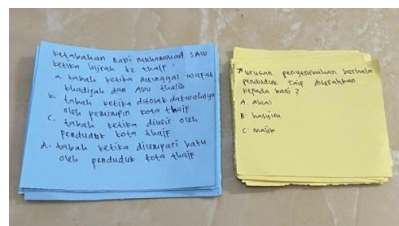 ketabahan nabi muhammad SAW
ketika hijrah ke thaif :
a. tabah ketika ditinggal wafat
khadijah dan Abu thalib
b. tabah ketika ditolak dakwahnya
oleh pemimpin kota thaif
c. tabah ketika diusir oleh
penduduk kota thaif
d. tabah ketika dilempari batu
oleh penduduk kota thaif
urusan penyembahan berhala
penduduk Taif diserahkan
kepada bani ?
A.
B. hasyim
C. malik